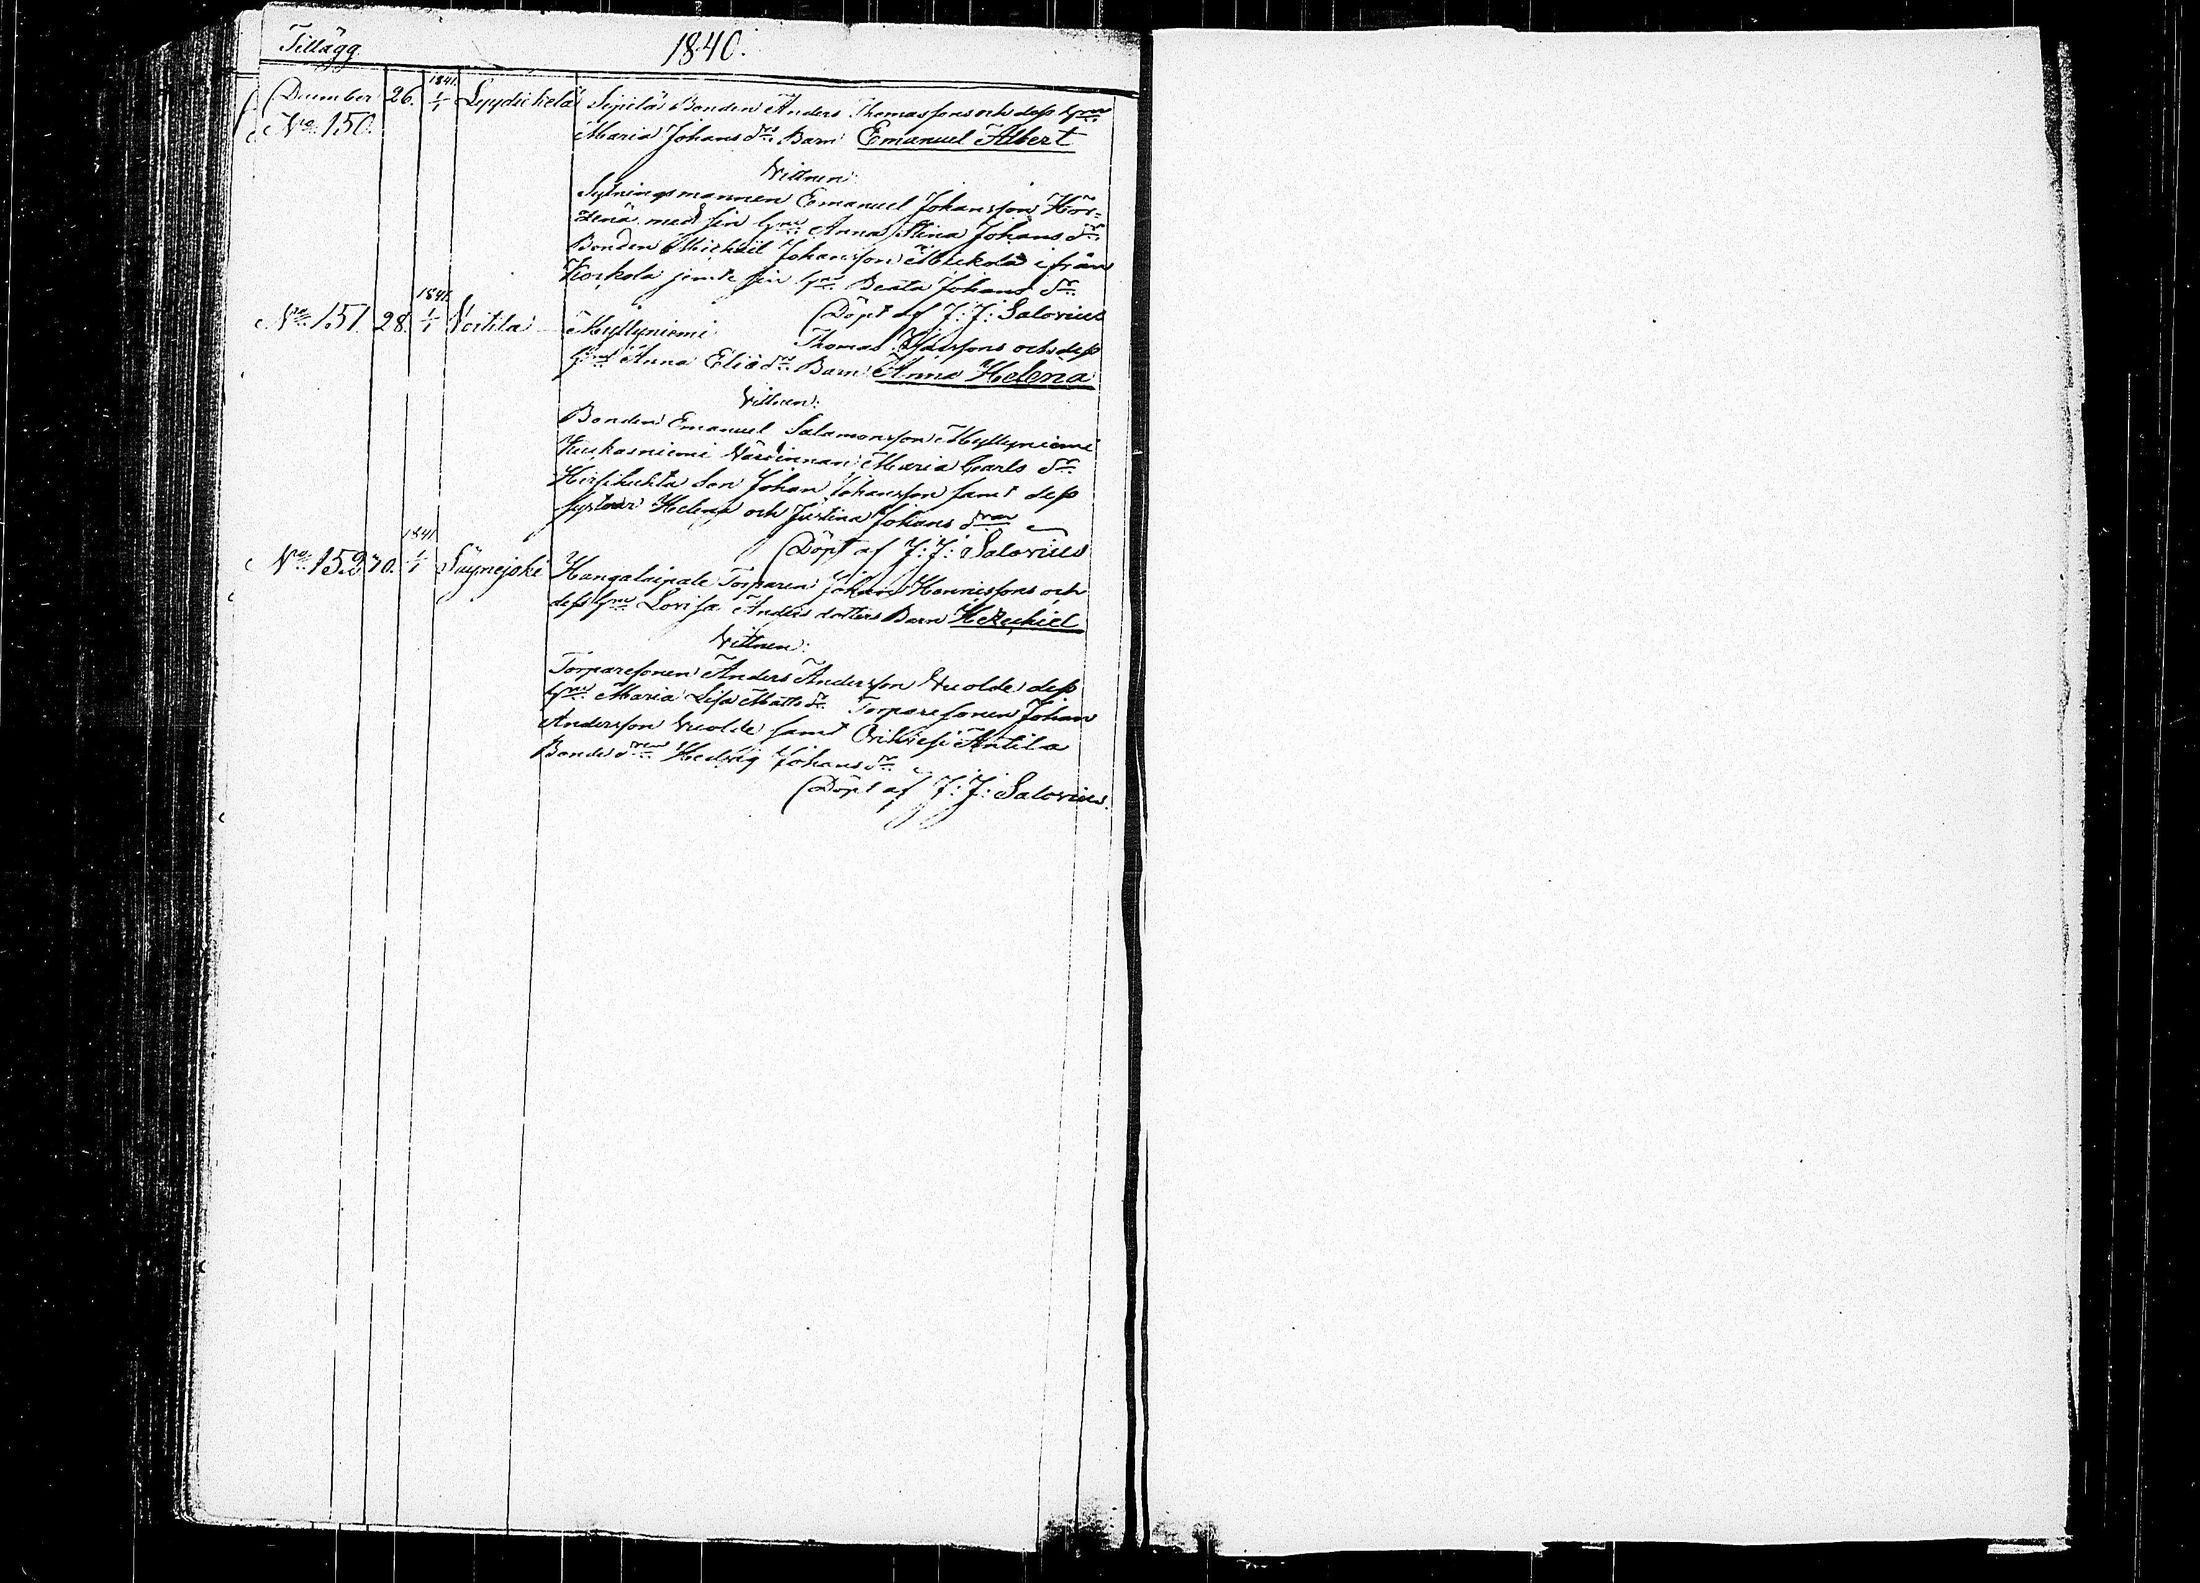 Tillägg. 1840.
December 26. 1841 1/1 Lyydickelä Sipilä Bonden Anders Thomassons och dess hu
No 150. Maria Johans dr Barn Emanuel Albert
Vittnen:
Sytningsmannen Emanuel Johansson Hör-
med sin hu Anna Stina Johans dr
Bonden Michael Johansson Mickola ifrån
Korkola jemte sin hu Beata Johans dr
Döpt af J: J: Salovius
No 151 28. 1841 1/1 Voitila Myllyniemi Thomas och dess
hu Anna Eliæ dr Barn Anna Helena
Vittnen:
Bonden Emanuel Salamonsson Myllyniemi
Kuukasniemi Värdinnan Maria Carls dr
Hirsihuhta Son Johan Johansson samt dess
systrar Helena och Justina Johans drar
Döpt af J: J: Salovius
No 152 30. 1841 1/1 Säynejoki Kangalaipale Torparen Johan Hennissons och
dess hu Lovisa Anders dotters Barn Hezechiel
Vittnen:
Torparesonen Anders Andersson Vuolde dess
hu Maria Lisa Matts dr Torparesonen Johan
Andersson Vuolde samt Orihvesi Antila
Bonde dren Hedvig Johans dr
Döpt af J: J: Salovius.